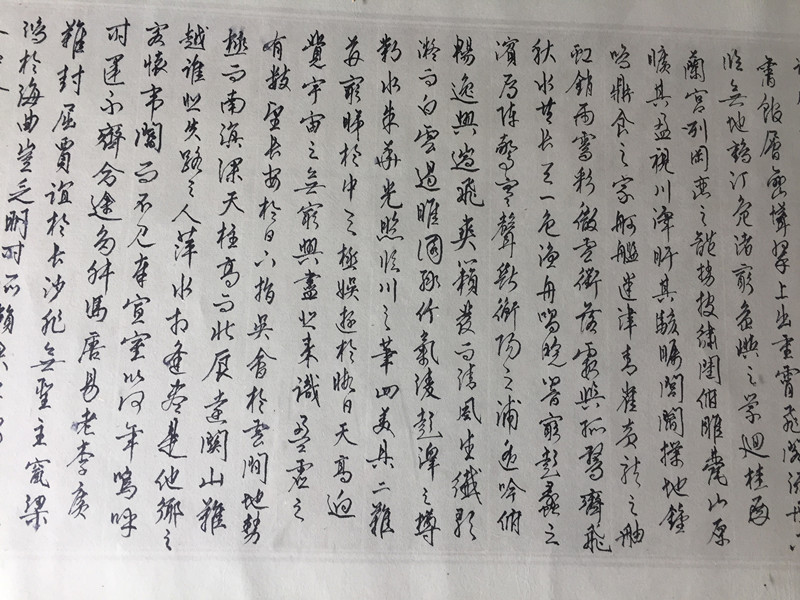 舊館層巒聳翠上出重霄飛閣流丹下
臨無地鶴汀鳧渚窮島嶼之縈迴桂殿
蘭宮列岡巒之體勢披繡闥俯雕甍山原
曠其盈視川澤盱其駭矚閭閻撲地鍾
鳴鼎食之家舸艦迷津青雀黃龍之舳
虹銷雨霽彩徹雲衢落霞與孤鶩齊飛
秋水共長天一色漁舟唱晚響窮彭蠡之
濱雁陣驚寒聲斷衡陽之浦遙吟俯
暢逸興遄飛爽籟發而清風生纖歌
凝而白雲遏睢園綠竹氣凌彭澤之樽
鄴水朱華光照臨川之筆四美具二難
并窮睇於中天極娛遊於暇日天高迥
覺宇宙之無窮興盡悲來識盈虛之
有數望長安於日下指吳會於雲間地勢
極而南溟深天柱高而北辰遠關山難
越誰悲失路之人萍水相逢盡是他鄉之
客懷帝閽而不見奉宣室以何年嗚呼
時運不齊命途多舛馮唐易老李廣
難封屈賈誼於長沙非無聖主竄梁
鴻於海曲豈乏明時所賴